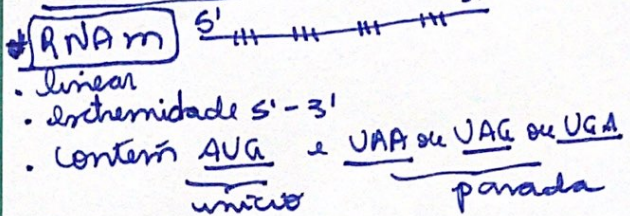 RNAm 5'
. linear
. extremidade 5'-3'
. contém AUG e UAA ou UAG ou UGA
início parada